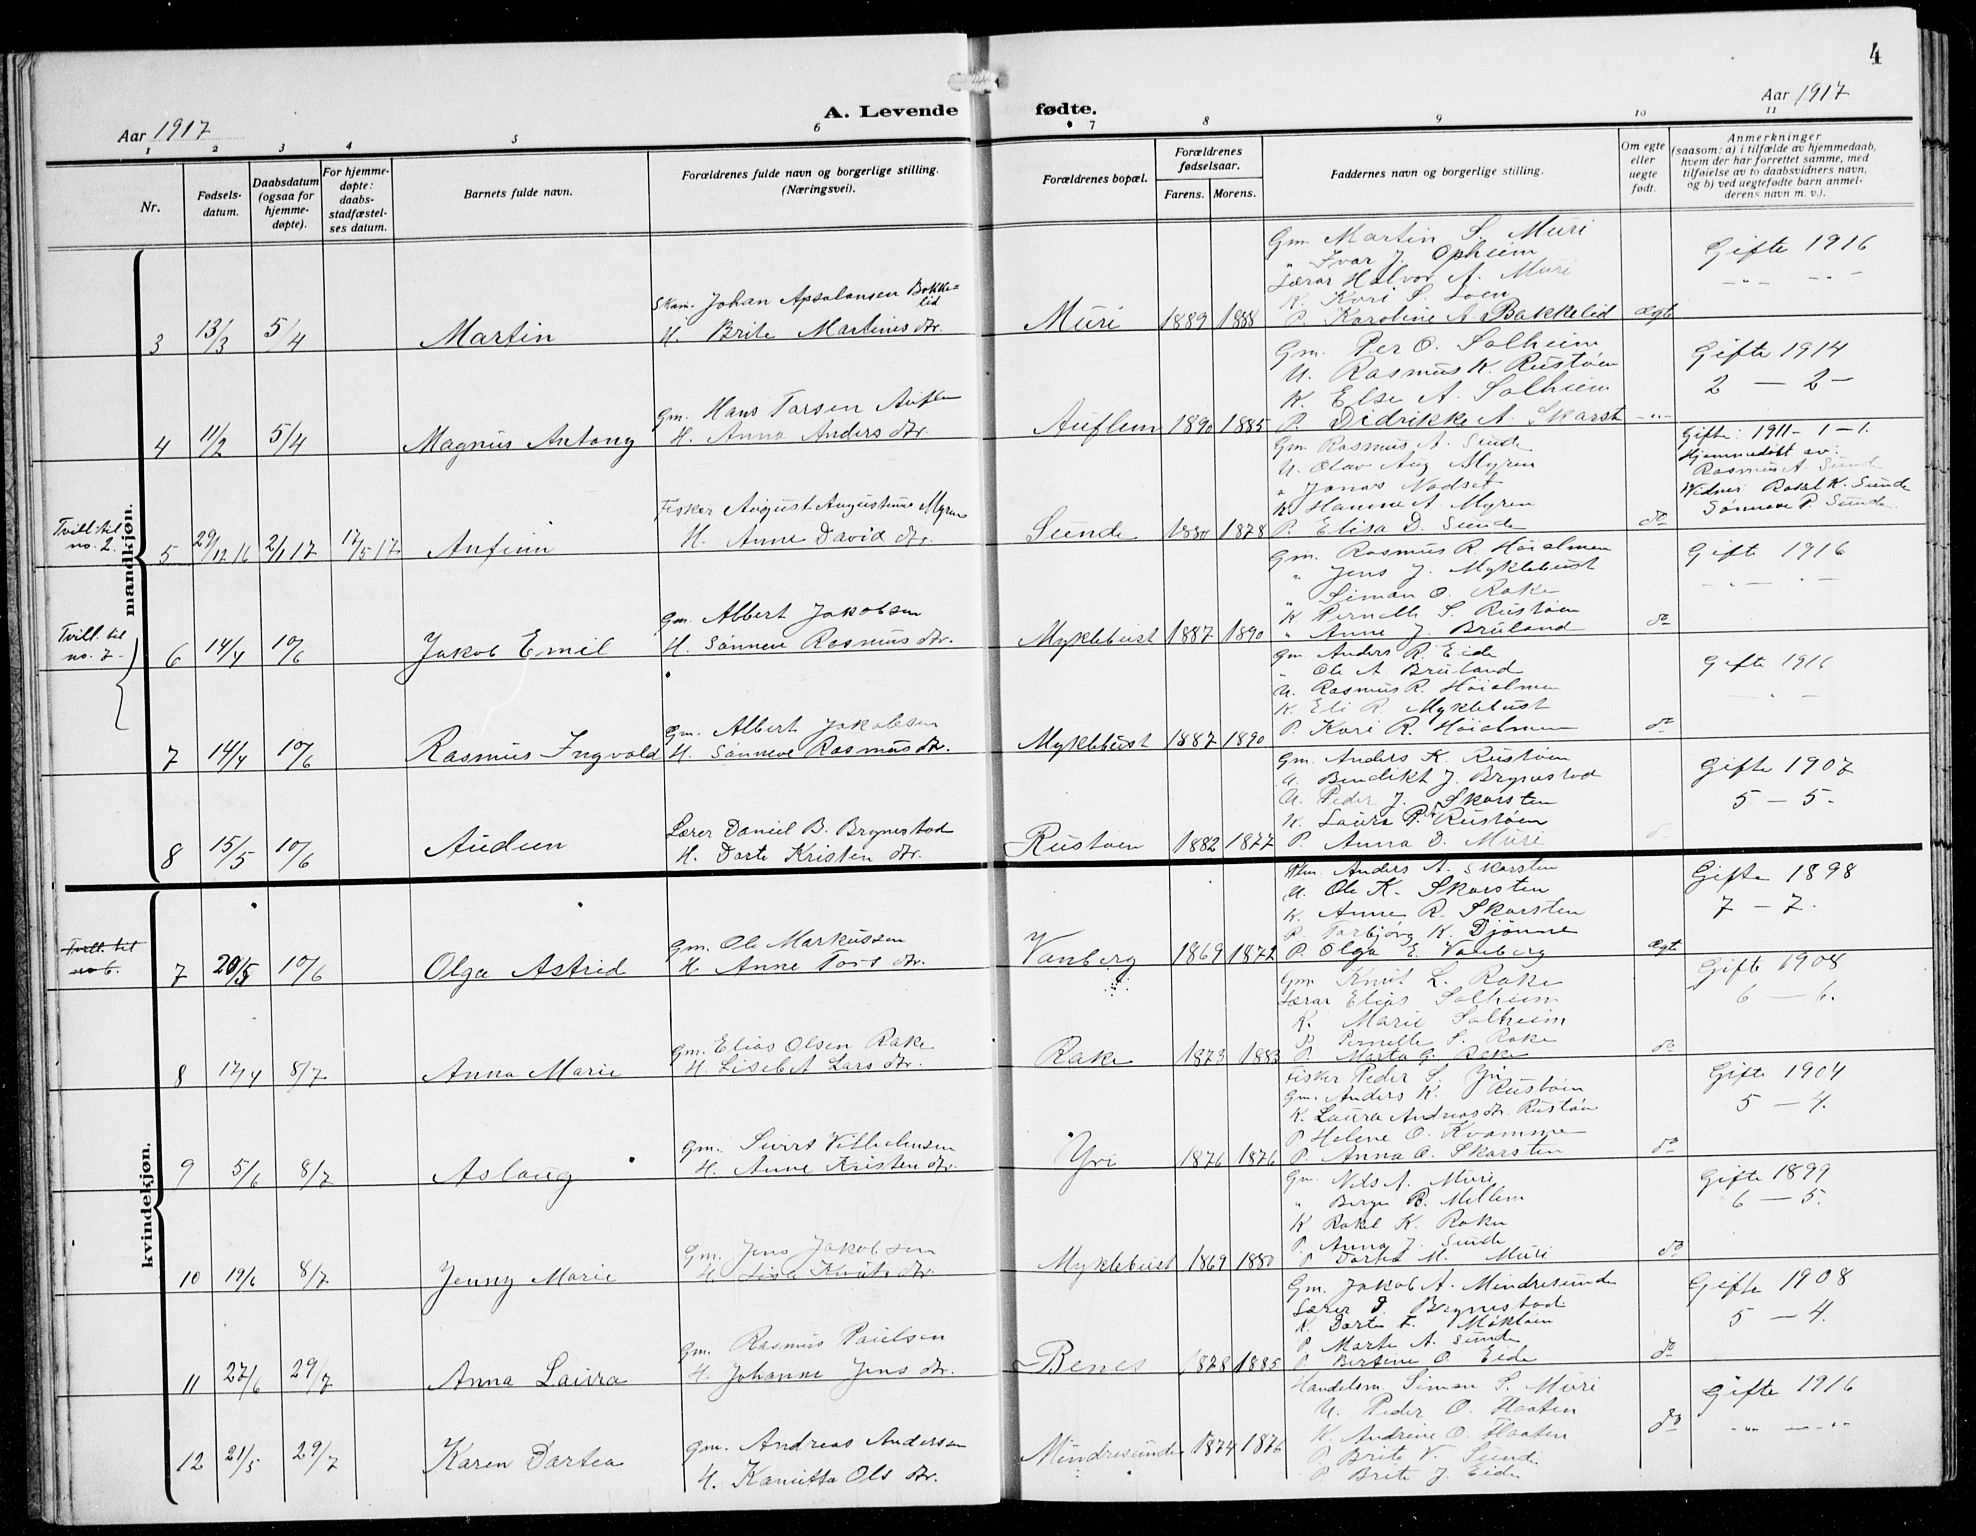 4
Aar 1917
A. Levende fødte.
Aar 1917
1 2 3 4 5 6 7 8 9 10 11
Nr.
Fødsels-
datum.
Daabsdatum
(ogsaa for
hjemme-
døpte).
For hjemme-
døpte:
daabs-
stadfæstel-
ses datum.
Barnets fulde navn.
Forældrenes fulde navn og borgerlige stilling.
(Næringsvei).
Forældrenes bopæl.
Forældrenes
fødselsaar.
Farens. Morens.
Faddernes navn og borgerlige stilling.
Om egte
eller
uegte
født.
Anmerkninger
(saasom: a) i tilfælde av hjemmedaab,
hvem der har forrettet samme, med
tilføielse av to daabsvidners navn,
og b) ved uegtefødte barn anmel-
derens navn m. v.).
mandkjøn.
3 13/3 5/4 Martin
Johan Apsalonsen Bakke-
lid
H. Brite Martines dtr.
Muri 1889 1888
Gm. Martin S. Muri
" Ivar J. Opheim
Lærar Halvor A. Muri
K. Kari S. Loen
P. Karoline A. Bakkelid
ægte
Gifte 1916
4 11/2 5/4 Magnus Antony
Gm. Hans Tarsen Auflem
H. Anna Anders dtr.
Auflem 1890 1885
Gm. Per O. Solheim
U. Rasmus K. Rustøen
K. Else A. Solheim
P. Didrikke A. Skarst
Gifte 1914
2 — 2 —
Tvill. til
no. 2.
5 29/12 16 2/1 17 17/5 17 Anfinn
Fisker August Augustinus Myren
H. Anne David dtr.
Sunde 1880 1878
Gm. Rasmus A. Sunde
U. Olav Aug Myren
" Jonas Nodset
K. Hanna A. Myren
P. Elisa D. Sunde
do
Gifte: 1911 - 1 - 1.
Hjemmedøbt av:
Rasmus A. Sunde
Vidner: Rakel K. Sunde
Sønneve P. Sunde.
Tvill. til
no. 7.
6 14/4 10/6 Jakob Emil
Gm. Albert Jakobsen
H. Sønneve Rasmus dtr.
Myklebust 1887 1890
Gm. Rasmus R. Høialmen
" Jens J. Myklebust
" Simon O. Rake
K. Pernelle S. Rustøen
" Anne J. Bruland
do
Gifte 1916
7 14/4 10/6 Rasmus Ingvald
Gm. Albert Jakobsen
H. Sønneve Rasmus dtr.
Myklebust 1887 1890
Gm. Anders R. Eide
" Ole A. Bruland
U. Rasmus R. Høialmen
K. Eli R. Myklebust
P. Kari R. Høialmen
do
Gifte 1916
8 15/5 10/6 Audun
Lærer Daniel B. Brynestad
H. Dorte Kristen dtr.
Rustøen 1882 1877
Gm. Anders K. Rustøen
U. Bendikt J. Brynestad
U. Peder J. Skarsten
K. Laura P. Rustøen
P. Anna D. Muri
Gifte 1907
5 — 5.
kvindekjøn.
Tvill. til
no 6.
7 20/5 10/6 Olga Astrid
Gm. Ole Markussen
H. Anne Tors dtr.
Vanberg 1869 1872
Anders A. Skarsten
U. Ole K. Skarsten
K. Anne R. Skarsten
P. Torbjørg K. Djønne
P. Olga E. Vanberg
ægte
Gifte 1898
7 — 7.
8 17/4 8/7 Anna Marie
Gm. Elias Olsen Rake
H. Lisebet Lars dtr.
Rake 1873 1883
Gm. Knut L. Rake
Lærar Elias Solheim
K. Marie Solheim
P. Pernille S. Rake
P. Marta G. Rake
do
Gifte 1908
6 — 6.
9 5/6 8/7 Aslaug
Gm. Sivert Vilhelmsen
H. Anne Kristen dtr.
Yri 1876 1876
Fisker Peder S. Yri
Gm. Anders K. Rustøen
K. Laura Andreas dtr. Rustøen
P. Helene O. Kvamme
P. Anna O. Skarsten
do
Gifte 1904
5 — 4.
10 19/6 8/7 Jenny Marie
Gm. Jens Jakobsen
H. Lisa Knuts dtr.
Myklebust 1869 1880
Gm. Nils A. Muri
" Berge R. Mellem
K. Rakel K. Rake
P. Anna J. Sunde
P. Dortea M. Muri
do
Gifte 1899
6 — 5.
11 27/6 29/7 Anna Laura
Gm. Rasmus Paulsen
H. Johanne Jens dtr.
Benes 1878 1885
Gm. Jakob A. Mindresunde
Lærer D. Brynestad
K. Dorte T.
P. Marte A. Sunde
P. Bertine O. Eide
do
Gifte 1908
5 — 4.
12 21/5 29/7 Karen Dortea
Gm. Andreas Andersen
H. Kanutta Ols dtr.
Mindresunde 1874 1876
Handelsm. Simon S. Muri
U. Peder O. Flaaten
K. Andrine O. Flaaten
P. Brite V. Sunde
P. Brite J. Eide
do
Gifte 1916